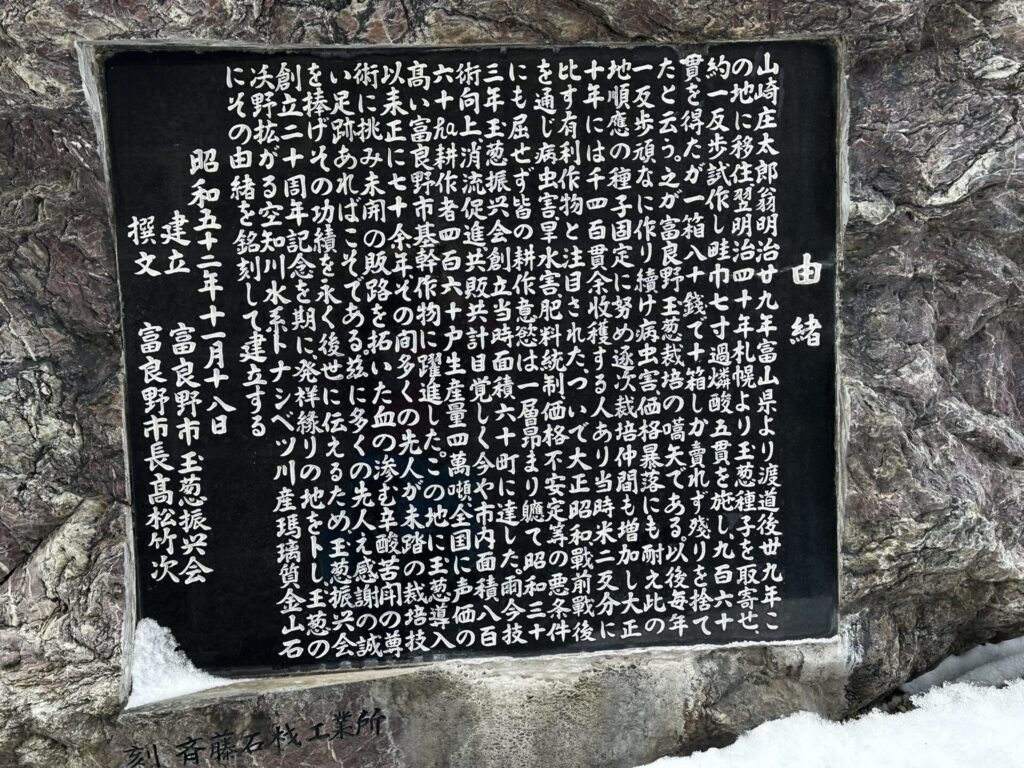 由緒
山崎庄太郎翁明治廿九年富山県より渡道後丗九年こ
の地に移住翌明治四十年札幌より玉葱種子を取寄せ、
約一反歩試作し畦巾七寸過燐酸五貫を施し、九百六十
貫を得たが一箱八十銭で十箱しか賣れず残りを捨て
たと云う。之が富良野玉葱栽培の嚆矢である。以後毎年
一反歩頑なに作り續け病虫害価格暴落にも耐え比の
地順應の種子固定に努め逐次栽培仲間も増加し大正
十年には千四百貫余收穫する人あり当時米二反分に
比す有利作物と注目された。ついで大正昭和戰前戰後
を通じ病虫害旱水害肥料統制価格不安定等の悪条件
にも屈せず皆の耕作意慾は一層昂まり軈て昭和三十
三年玉葱振兴会創立当時面積六十町に達した。雨今技
術向上消流促進共販共計目覚しく今や市内面積八百
六十ha耕作者四百六十戸生産量四萬噸全国に声価の
高い富良野市基幹作物に躍進した。この地に玉葱導入
以来正に七十余年その間多くの先人が未踏の栽培技
術に挑み未開の販路を拓いた血の滲む辛酸苦闘の尊
い足跡あればこそである兹に多くの先人え感謝の誠
を捧げその功績を永く後世に伝えるため玉葱振兴会
創立二十周年記念を期に、発祥縁りの地をトし玉葱の
沃野拡がる空知川水系トナシベツ川産瑪瑙質金山石
にその由緒を銘刻して建立する
昭和五十二年十一月十八日
建立 富良野市玉葱振兴会
撰文 富良野市長高松竹次
刻 斉藤石材工業所